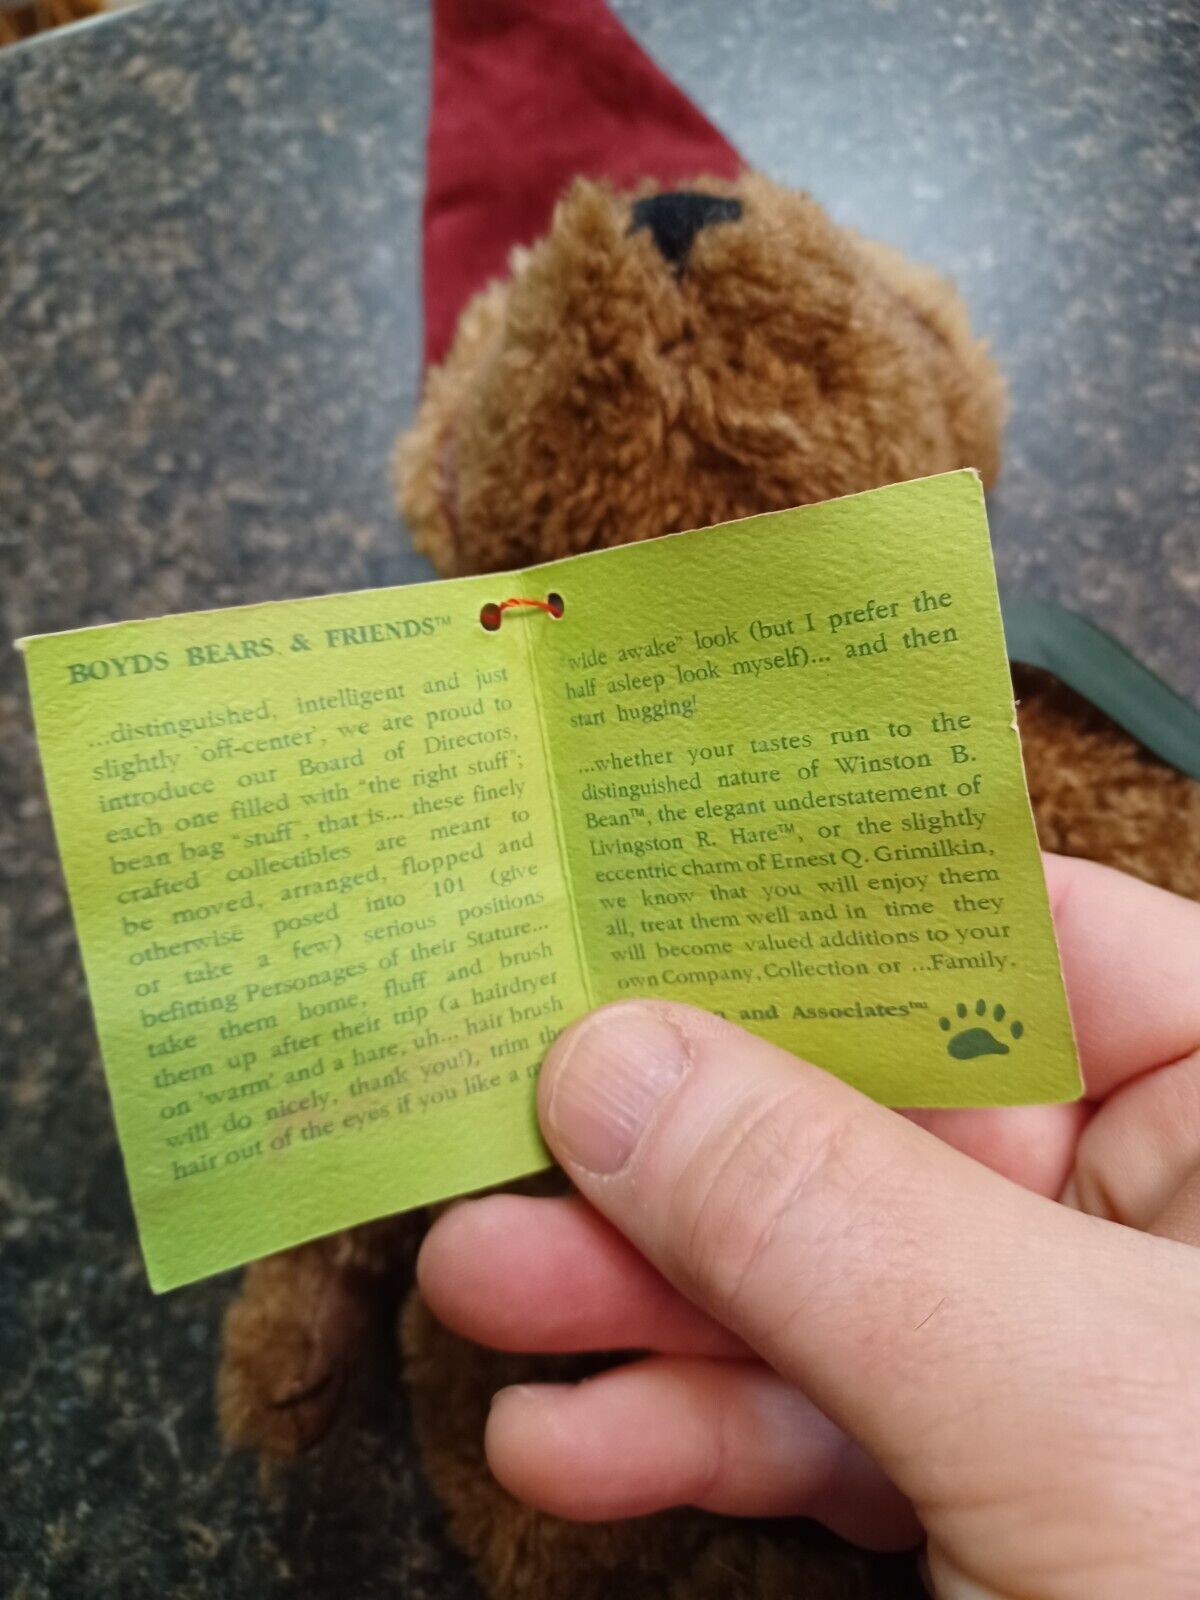 BOYDS BEARS & FRIENDS™
...distinguished, intelligent and just
slightly 'off-center', we are proud to
introduce our Board of Directors,
each one filled with "the right stuff";
bean bag "stuff", that is... these finely
crafted collectibles are meant to
be moved, arranged, flopped and
otherwise posed into 101 (give
or take a few) serious positions
befitting Personages of their Stature...
take them home, fluff and brush
them up after their trip (a hairdryer
on 'warm' and a hare, uh... hair brush
will do nicely, thank you!), trim the
hair out of the eyes if you like a
"wide awake" look (but I prefer the
half asleep look myself)... and then
start hugging!
...whether your tastes run to the
distinguished nature of Winston B.
Bean™, the elegant understatement of
Livingston R. Hare™, or the slightly
eccentric charm of Ernest Q. Grimilkin,
we know that you will enjoy them
all, treat them well and in time they
will become valued additions to your
own Company, Collection or ...Family.
and Associates™